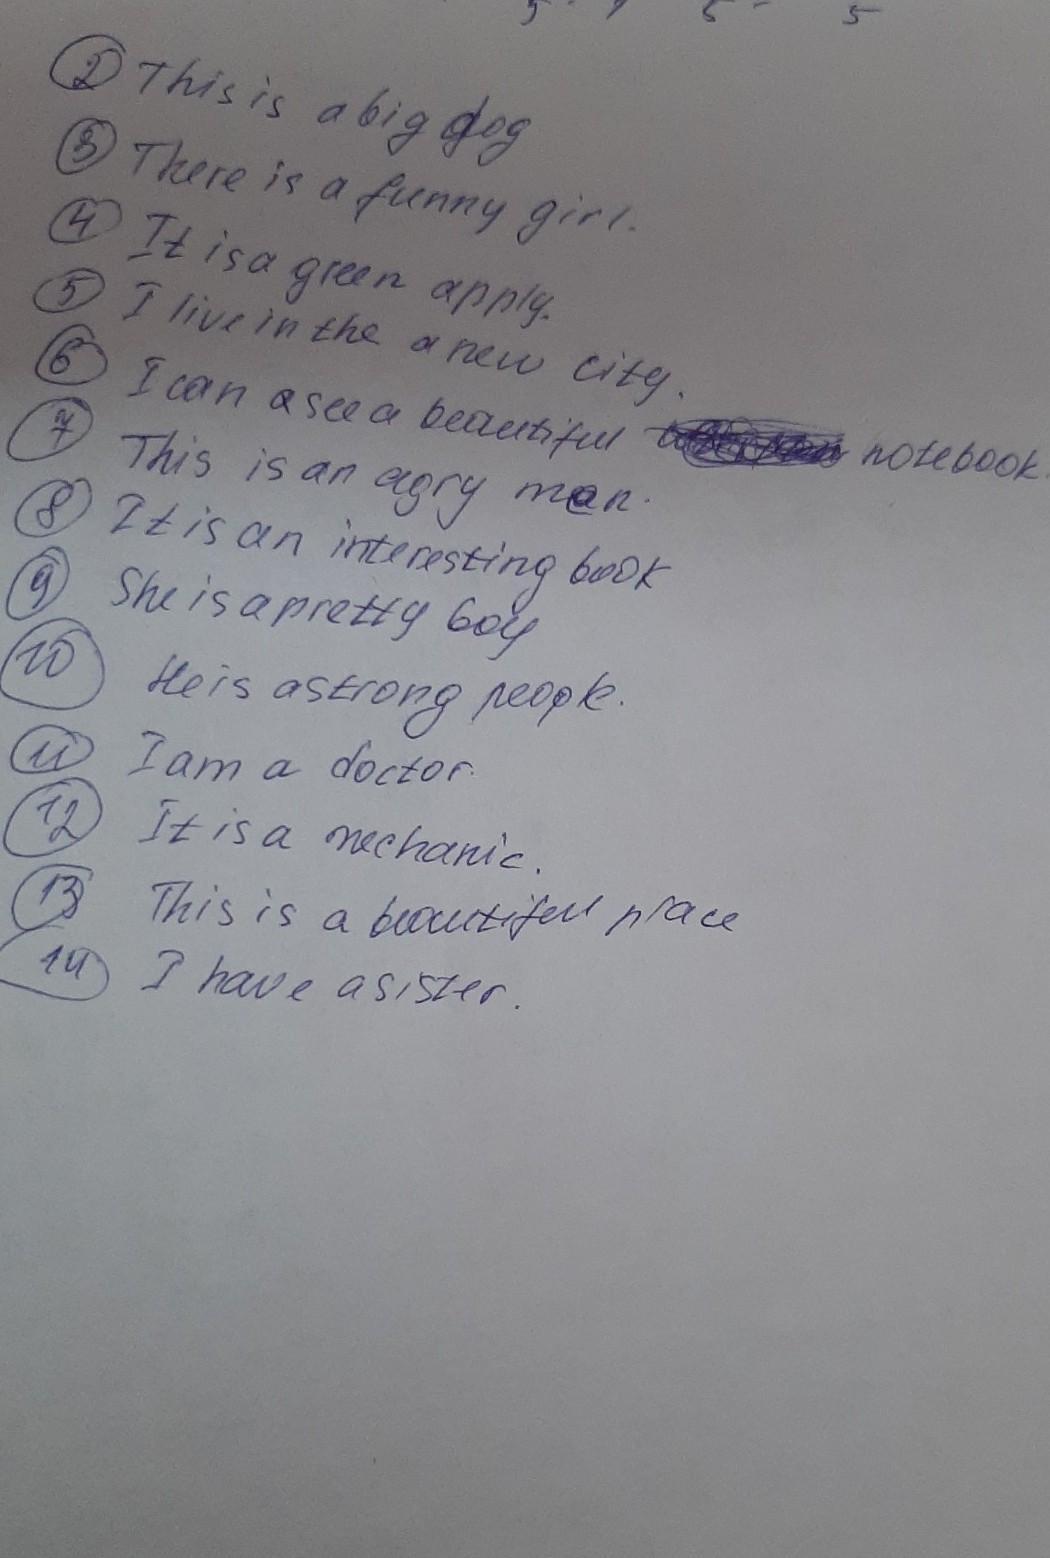 ② This is a big dog
③ There is a funny girl.
④ It is a green apply.
⑤ I live in the a new city.
⑥ I can a see a beautiful notebook.
⑦ This is an agry man.
⑧ It is an interesting book
⑨ She is a pretty boy
⑩ He is a strong people.
⑪ I am a doctor.
⑫ It is a mechanic.
⑬ This is a beautiful place
⑭ I have a sister.